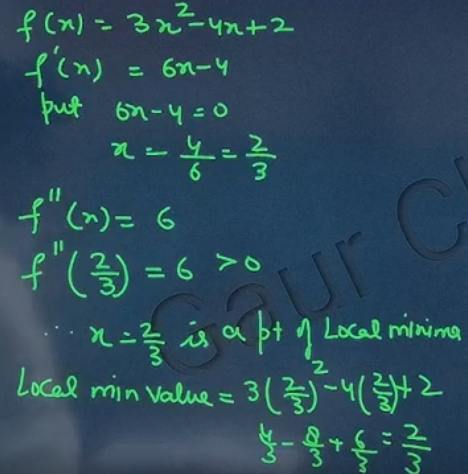 f(x) = 3x²-4x+2
f'(x) = 6x-4
put 6x-4=0
x = 4/6 = 2/3
f''(x) = 6
f''(2/3) = 6 >0
∴ x=2/3 is a pt of Local minima
Local min value = 3(2/3)²-4(2/3)+2
4/3 - 8/3 + 6/3 = 2/3
Gaur C